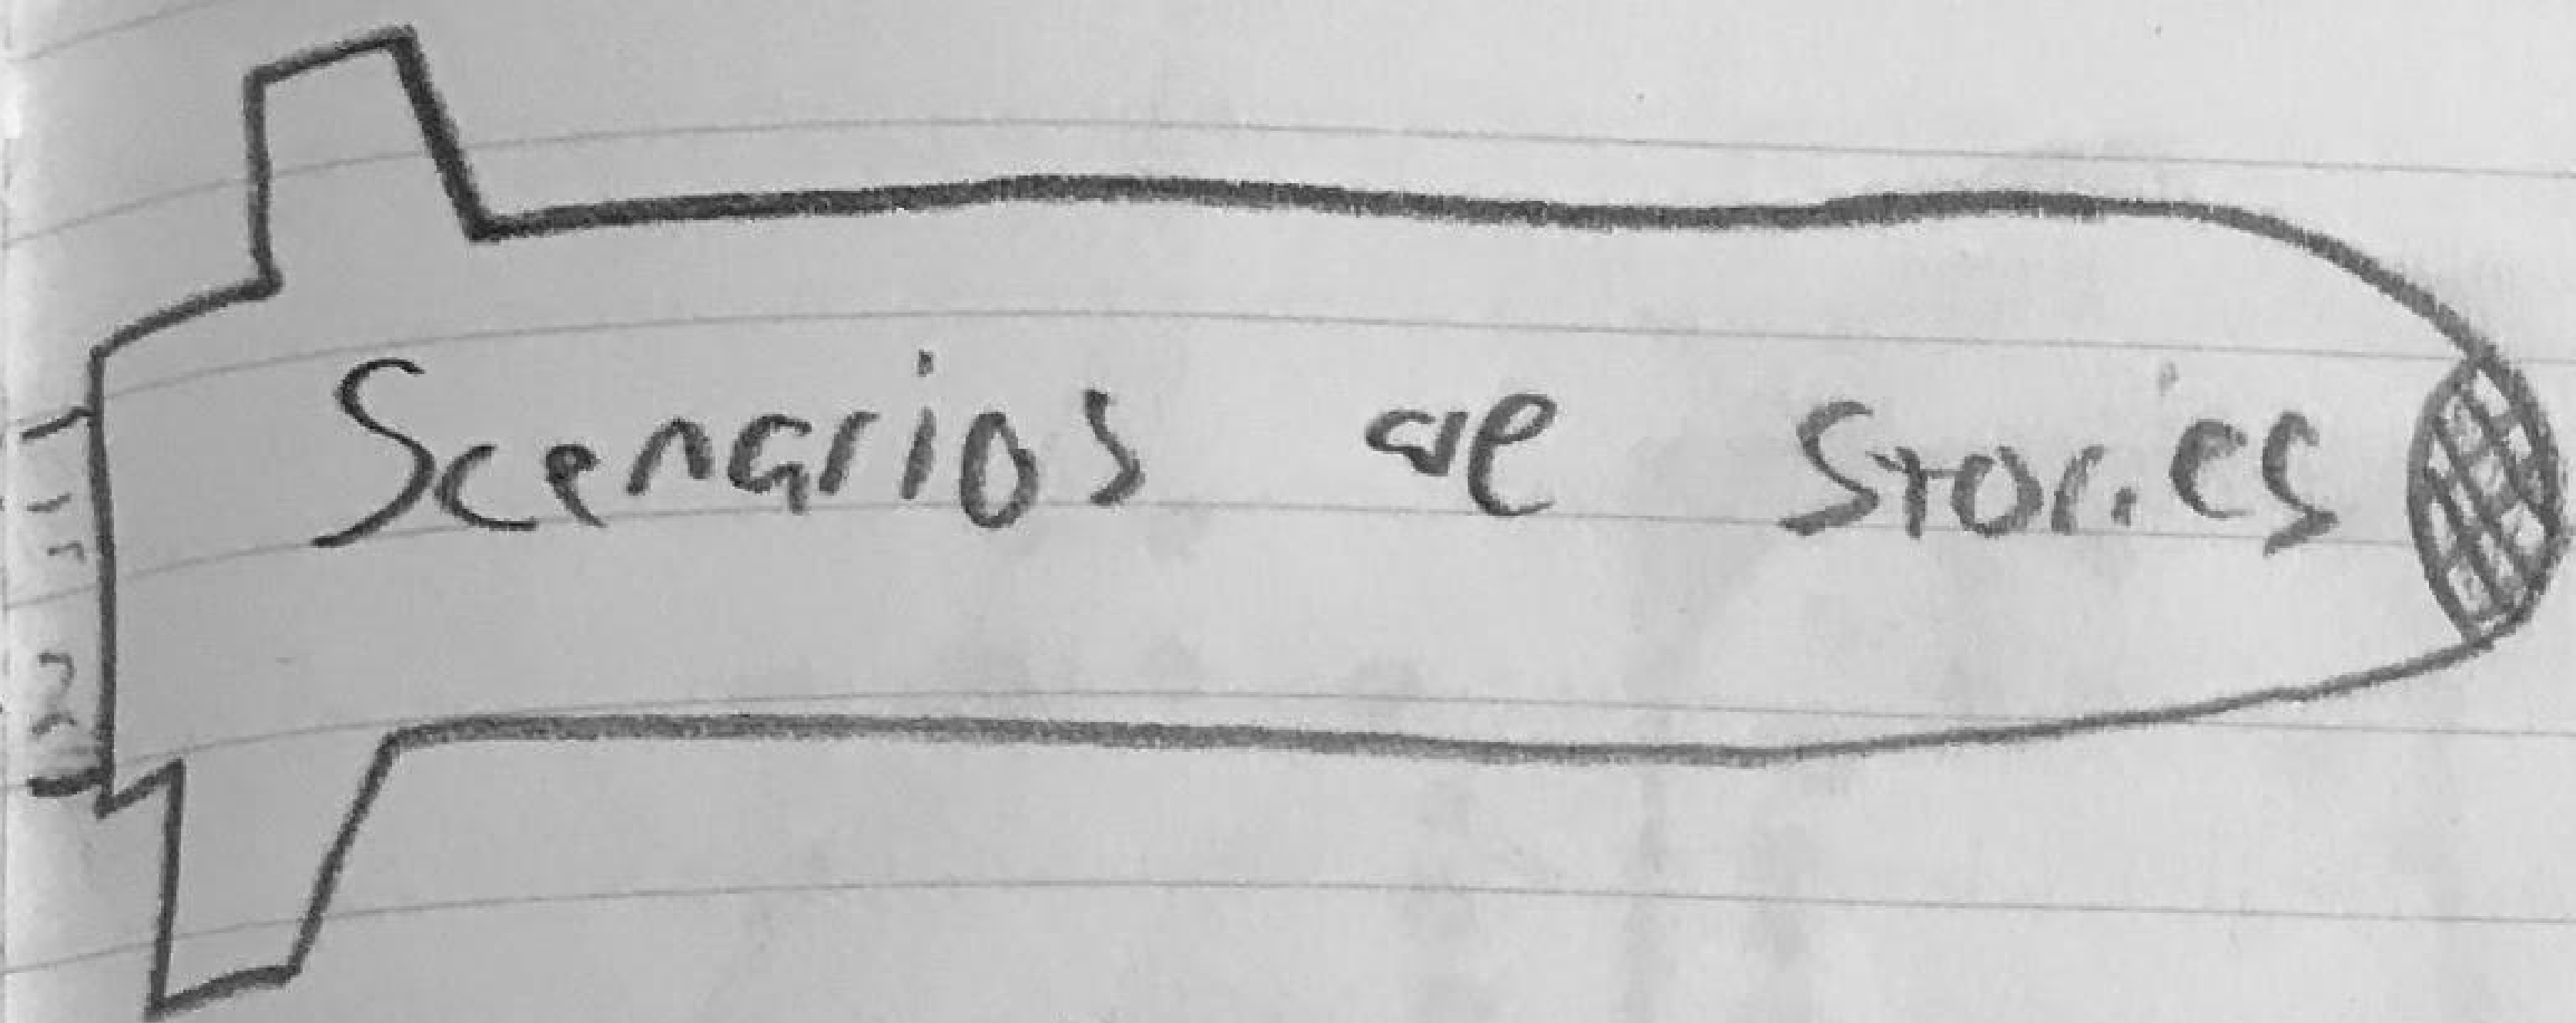 Scenarios are Stories